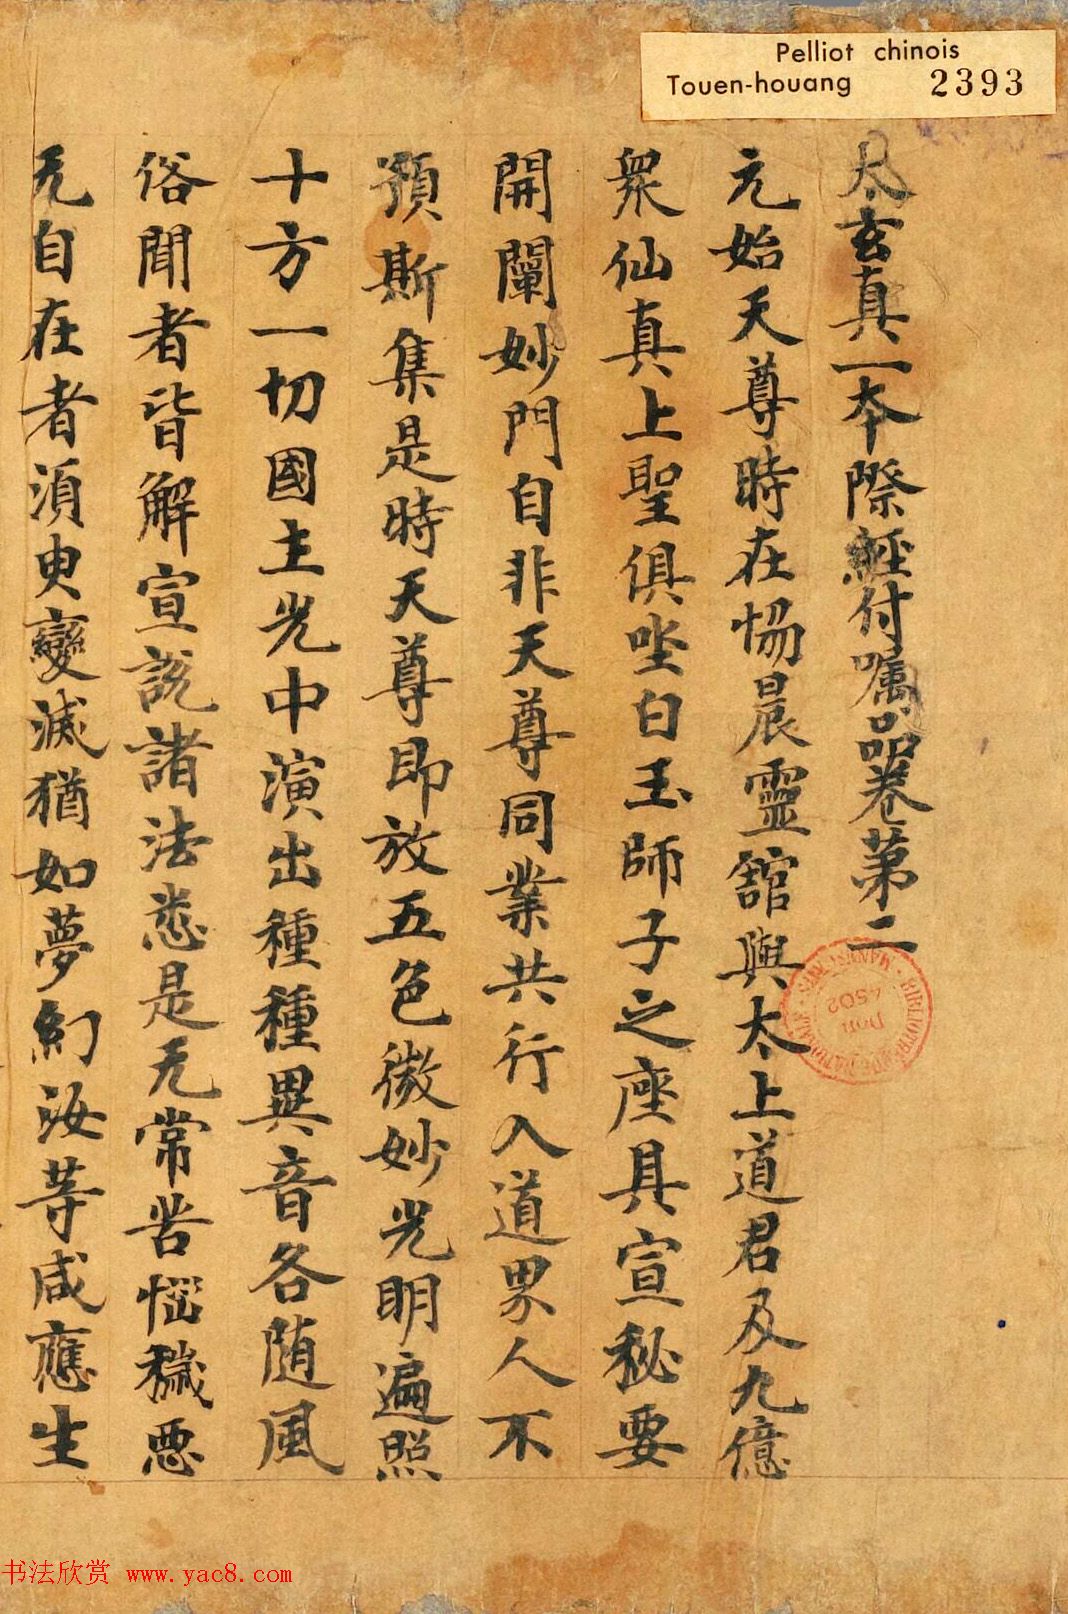 Pelliot chinois
Touen-houang 2393
太玄真一本際經付囑品卷第二
元始天尊時在惕晨靈舘與太上道君及九億
眾仙真上聖俱坐白玉師子之座具宣秘要
開闡妙門自非天尊同業共行入道界人不
預斯集是時天尊即放五色微妙光明遍照
十方一切國主光中演出種種異音各随風
俗聞者皆解宣説諸法悉是无常苦惱穢惡
无自在者須臾變滅猶如夢幻汝等咸應生
BIBLIOTHEQUE NATIONALE MANUSCRITS
Don
4502
书法欣赏 www.yac8.com